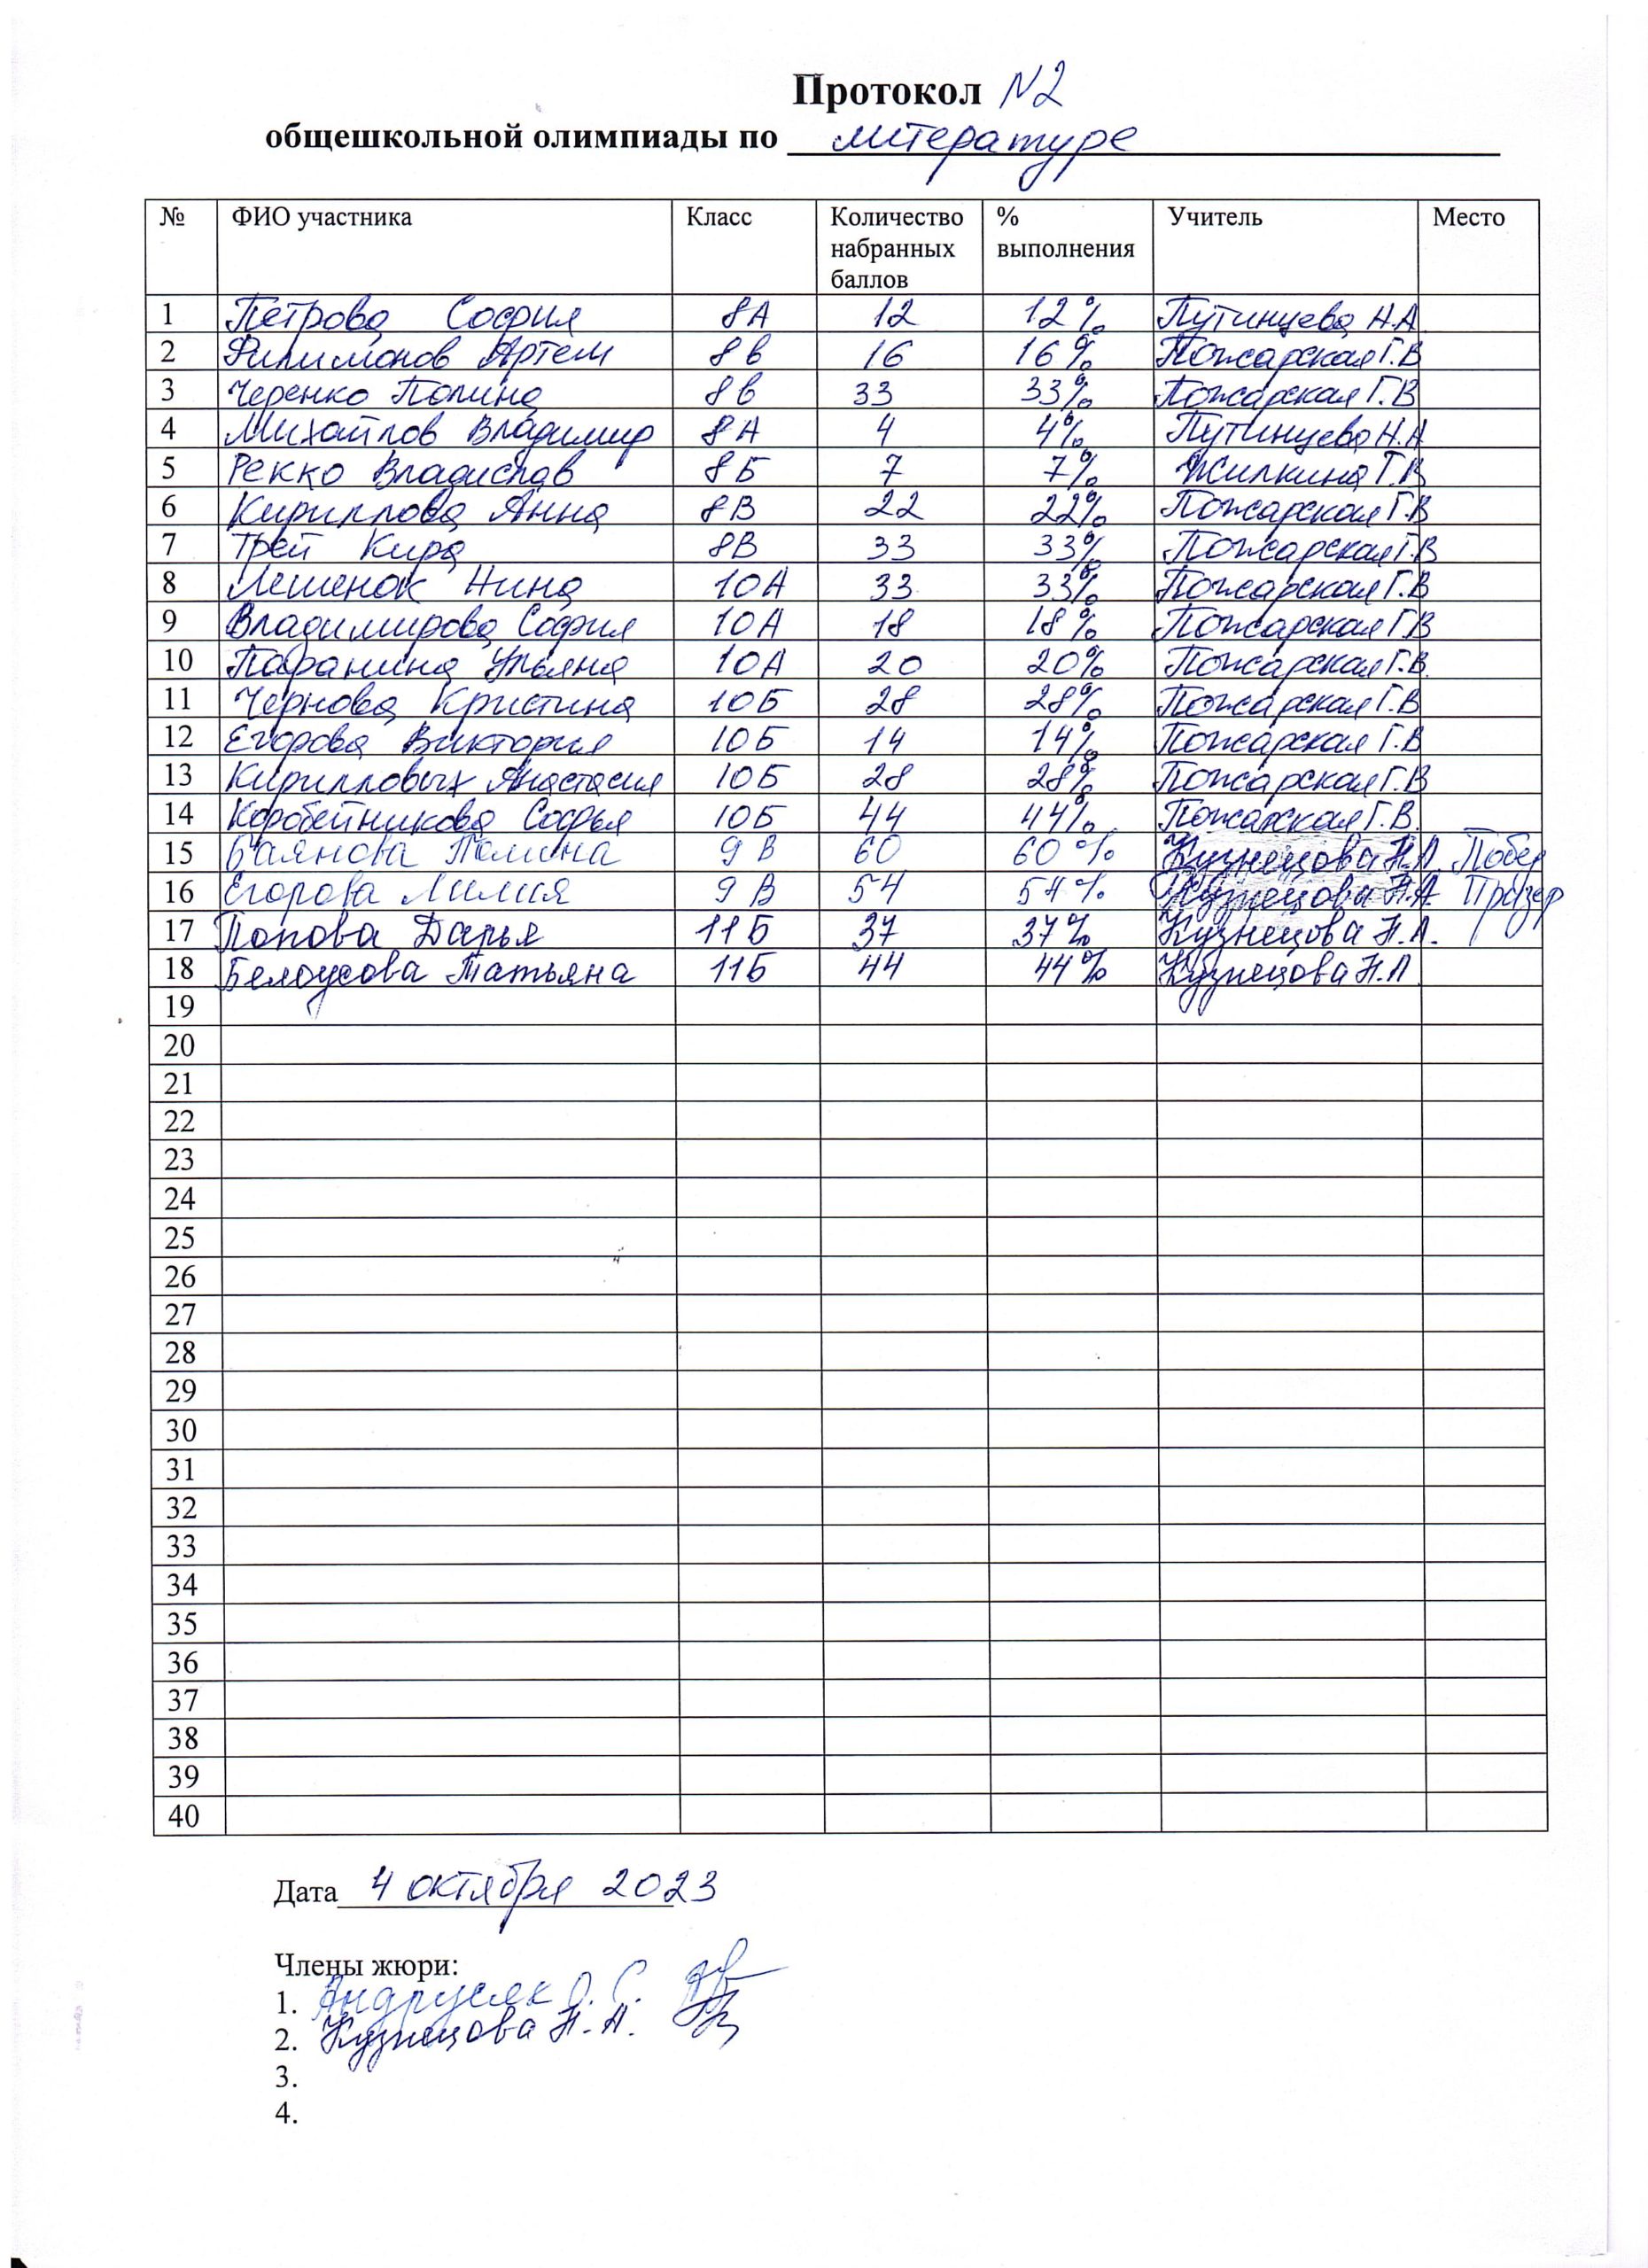 Протокол N2
общешкольной олимпиады по литературе
№ ФИО участника Класс Количество набранных баллов % выполнения Учитель Место
1 Петрова София 8А 12 12% Путинцева Н.А
2 Филимонов Артём 8в 16 16% Пожарская Г.В
3 Черенко Полина 8в 33 33% Пожарская Г.В
4 Михайлов Владимир 8А 4 4% Путинцева Н.А
5 Рекко Владислав 8Б 7 7% Жилкина Т.В
6 Кириллова Анна 8В 22 22% Пожарская Г.В
7 Трей Кира 8В 33 33% Пожарская Г.В
8 Лешенок Нина 10А 33 33% Пожарская Г.В
9 Владимирова София 10А 18 18% Пожарская Г.В
10 Паранина Ульяна 10А 20 20% Пожарская Г.В.
11 Чернова Кристина 10Б 28 28% Пожарская Г.В
12 Егорова Виктория 10Б 14 14% Пожарская Г.В
13 Кирилловых Анастасия 10Б 28 28% Пожарская Г.В
14 Коробейникова Софья 10Б 44 44% Пожарская Г.В.
15 Баянова Полина 9В 60 60% Кузнецова Н.А. Побед
16 Егорова Лилия 9В 54 54% Кузнецова Н.А Призер
17 Попова Дарья 11Б 37 37% Кузнецова Н.А.
18 Белоусова Татьяна 11Б 44 44% Кузнецова Н.А
19
20
21
22
23
24
25
26
27
28
29
30
31
32
33
34
35
36
37
38
39
40
Дата 4 октября 2023
Члены жюри:
1. Андрусяк О. С.
2. Кузнецова Н. А.
3.
4.